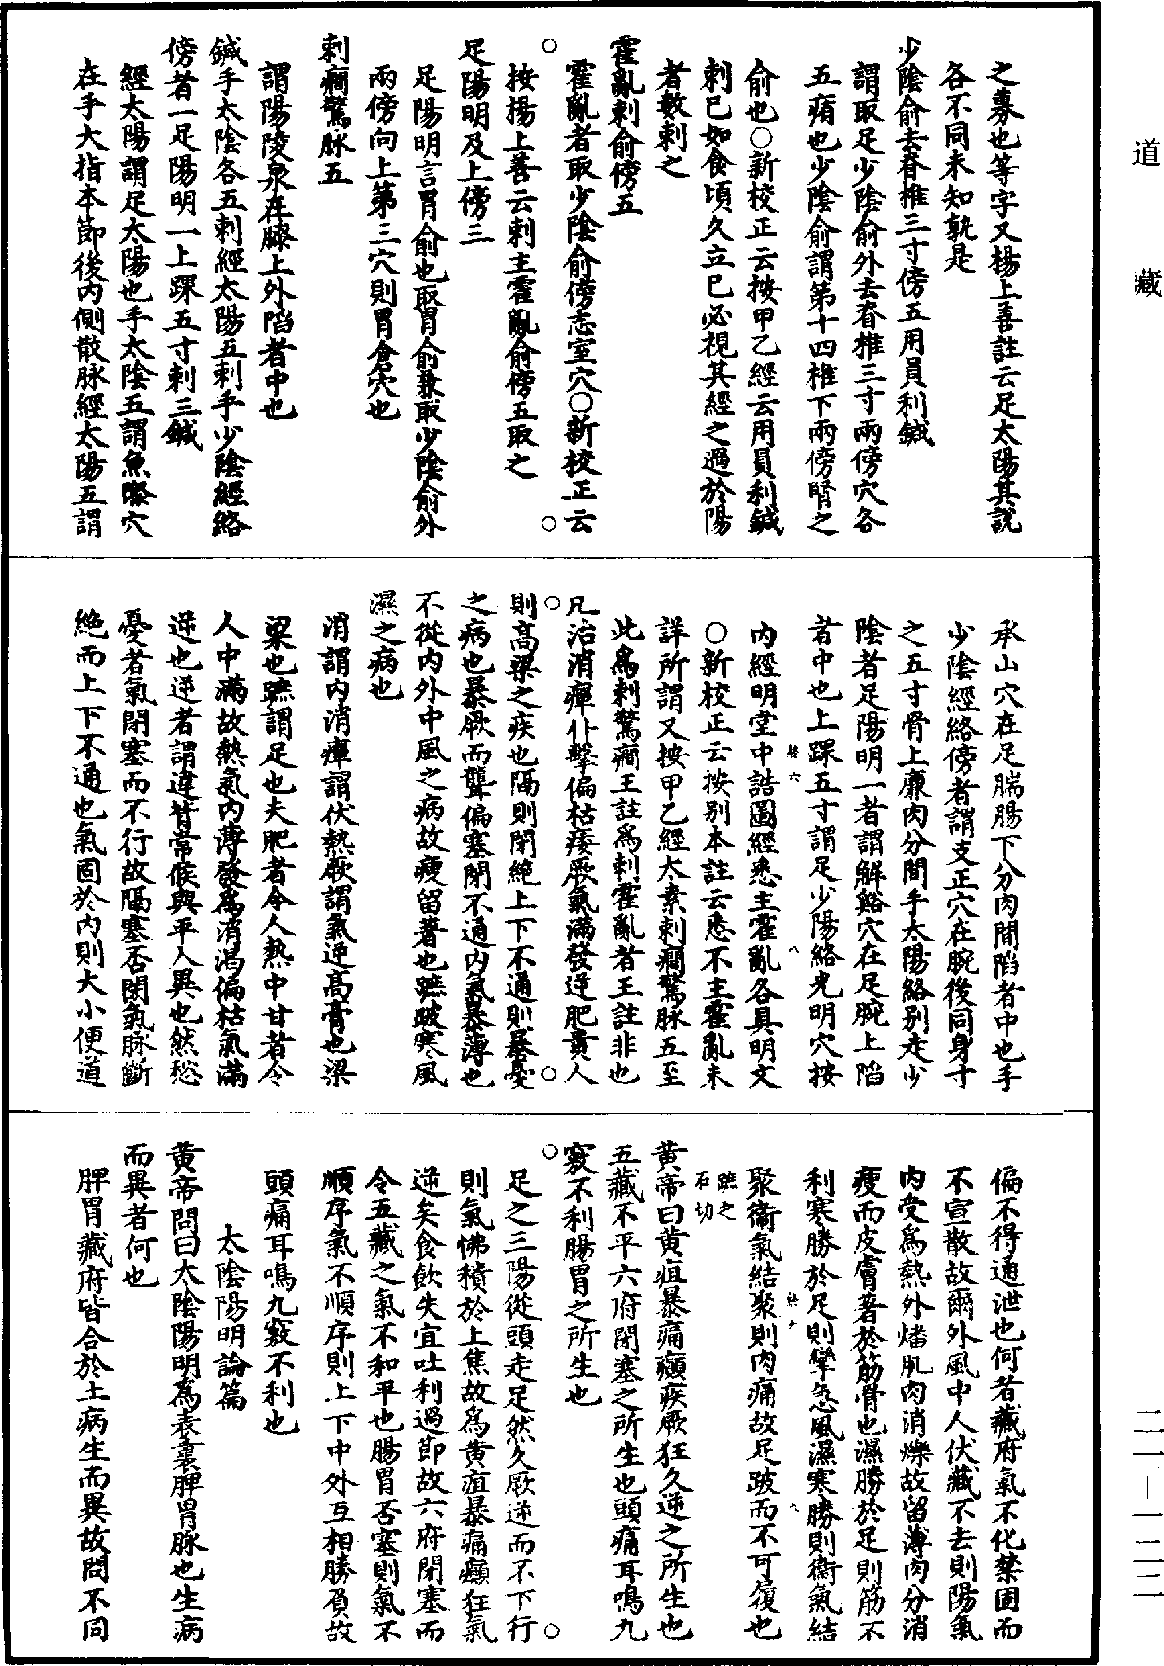 之募也等字又楊上善註云足太陽其說
各不同未知孰是
少陰俞去脊椎三寸傍五用員利鍼
謂取足少陰俞外去脊椎三寸兩傍穴各
五痏也少陰俞謂第十四椎下兩傍腎之
俞也○新校正云按甲乙經云用員利鍼
刺已如食頃久立已必視其經之過於陽
者數刺之
霍亂刺俞傍五
霍亂者取少陰俞傍志室穴○新校正云
按揚上善云刺主霍亂俞傍五取之
足陽明及上傍三
足陽明言胃俞也取胃俞兼取少陰俞外
兩傍向上第三穴則胃倉穴也
刺癇驚脉五
謂陽陵泉在膝上外陷者中也
鍼手太陰各五刺經太陽五刺手少陰經絡
傍者一足陽明一上踝五寸刺三鍼
經太陽謂足太陽也手太陰五謂魚際穴
在手大指本節後内側散脉經太陽五謂
承山穴在足腨腸下分肉間陷者中也手
少陰經絡傍者謂支正穴在腕後同身寸
之五寸骨上廉肉分間手太陽絡別走少
陰者足陽明一者謂解谿穴在足腕上陷
者中也上踝五寸謂足少陽絡光明穴按
内經明堂中誥圖經悉主霍亂各具明文
○新校正云按別本註云悉不主霍亂未
詳所謂又按甲乙經太素刺癇驚脉五至
此爲刺驚癇王註爲刺霍亂者王註非也
凡治消癉仆擊偏枯痿厥氣滿發逆肥貴人
則高梁之疾也隔則閉絶上下不通則暴憂
之病也暴厥而聾偏塞閉不通内氣暴薄也
不從内外中風之病故瘦留著也蹠跛寒風
濕之病也
消謂内消癉謂伏熱厥謂氣逆高膏也梁
梁也蹠謂足也夫肥者令人熱中甘者令
人中滿故熱氣内薄發爲消渴偏枯氣滿
逆也逆者謂違背常候與平人異也然愁
憂者氣閉塞而不行故隔塞否閉氣脉斷
絶而上下不通也氣固於内則大小便道
偏不得通泄也何者藏府氣不化禁固而
不宣散故爾外風中人伏藏不去則陽氣
内受爲熱外燔肌肉消爍故留薄肉分消
瘦而皮膚著於筋骨也濕勝於足則筋不
利寒勝於足則攣急風濕寒勝則衛氣結
聚衛氣結聚則肉痛故足跛而不可履也
蹠之
石切
黃帝曰黃疸暴痛癲疾厥狂久逆之所生也
五藏不平六府閉塞之所生也頭痛耳鳴九
竅不利腸胃之所生也
足之三陽從頭走足然久厥逆而不下行
則氣怫積於上焦故爲黃疸暴痛癲狂氣
逆矣食飲失宜吐利過節故六府閉塞而
令五藏之氣不和平也腸胃否塞則氣不
順序氣不順序則上下中外互相勝負故
頭痛耳鳴九竅不利也
太陰陽明論篇
黃帝問曰太陰陽明爲表裏脾胃脉也生病
而異者何也
脾胃藏府皆合於土病生而異故問不同
道藏
二一—一二二